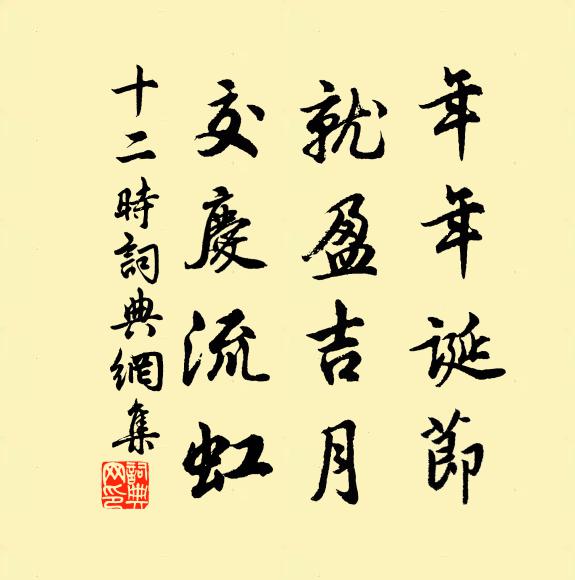 年年誕節
就盈吉月
交慶流虹
十二時詞典網集
詞典網印